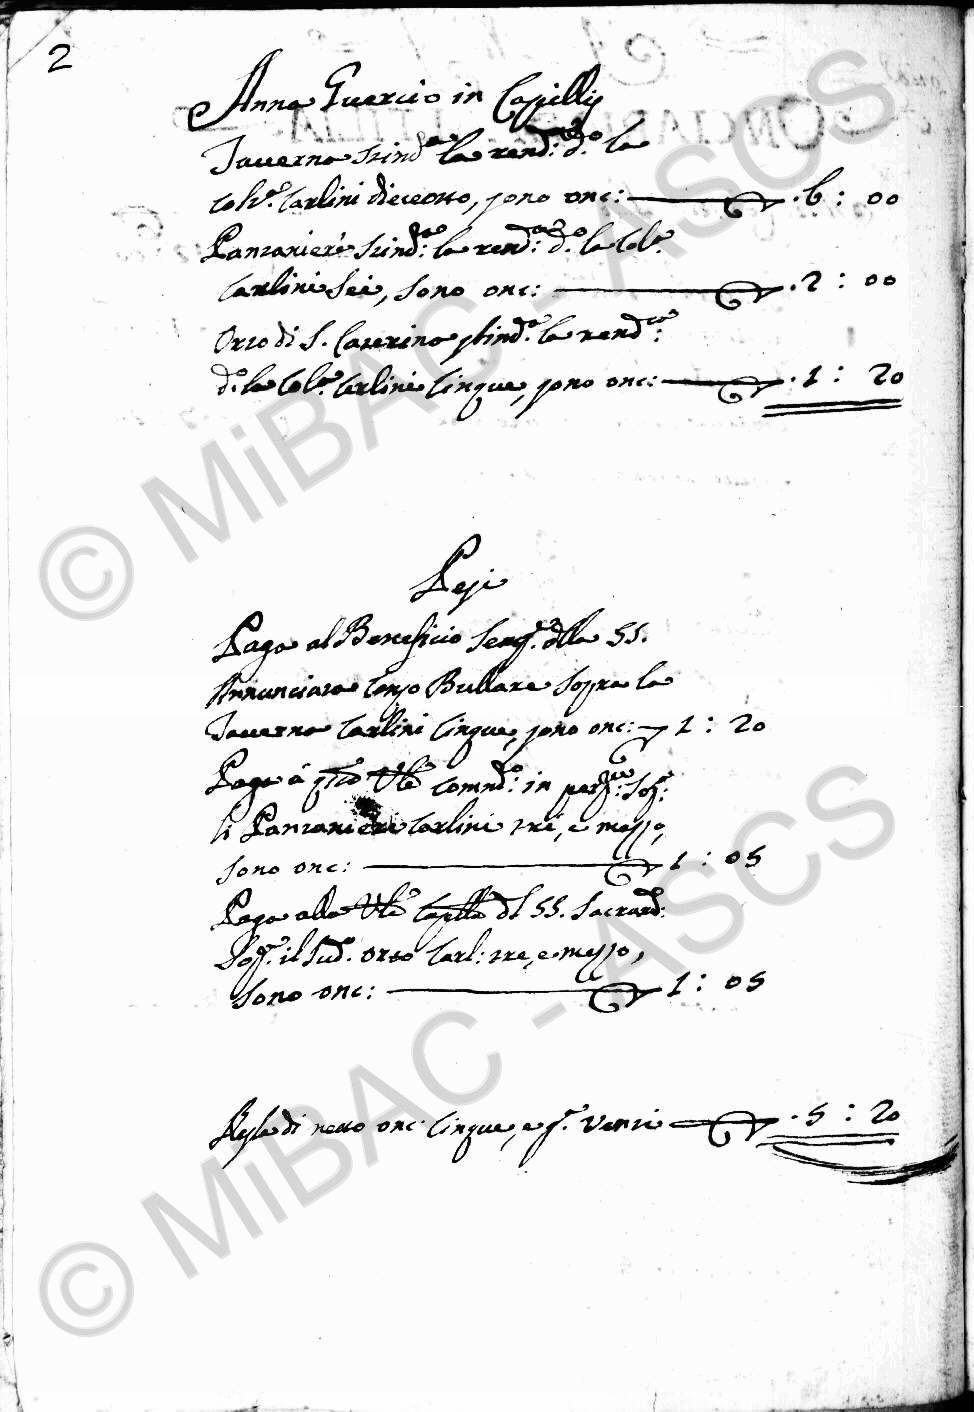 2
Anna Guercio in Capillis
Taverna stind.ª la rend: d.º la
Col.ª Carlini dieceotto, sono onc: . 6 : 00
Panzanieri stind: la rend: d.º la Col.ª
Carlini sei, sono onc: . 2 : 00
Orto di S. Caterina stind.ª la rend:
d.º la Col.ª Carlini cinque, sono onc: . 1 : 20
Pesi
Paga al Beneficio Semp. della SS.
Annunciata Censo Bullare sopra la
Taverna Carlini cinque, sono onc: 1 : 20
Paga à Vle Commd.º in sop:
li Panzanieri Carlini tré, e mezzo,
sono onc: 1 : 05
Paga alla Vle Cappella del SS. Sacram:
Sop.ª il sud. orto Carl: tre, e mezzo,
sono onc: 1 : 05
Resta di netto onc: cinque, e g.ª venti . 5 : 20
© MiBAC - ASCS
© MiBAC - ASCS